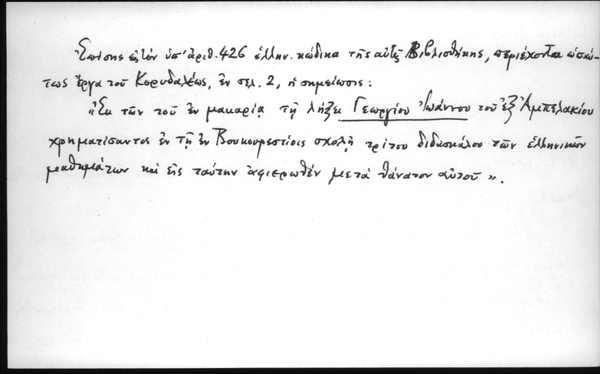 Ἐπίσης εἰς τὸν ὑπ' ἀριθ. 426 ἑλλην. κώδικα τῆς αὐτῆς Βιβλιοθήκης, περιέχοντα ὡσαύ-
τως ἔργα τοῦ Κορυδαλέως, ἐν σελ. 2, ἡ σημείωσις:
"Ἐκ τῶν τοῦ ἐν μακαρίᾳ τῇ λήξει Γεωργίου Ἰωάννου τοῦ ἐξ Ἀμπελακίου
χρηματίσαντος ἐν τῇ ἐν Βουκουρεστίοις σχολῇ τρίτου διδασκάλου τῶν ἑλληνικῶν
μαθημάτων καὶ εἰς ταύτην ἀφιερωθέν μετὰ θάνατον αὐτοῦ".